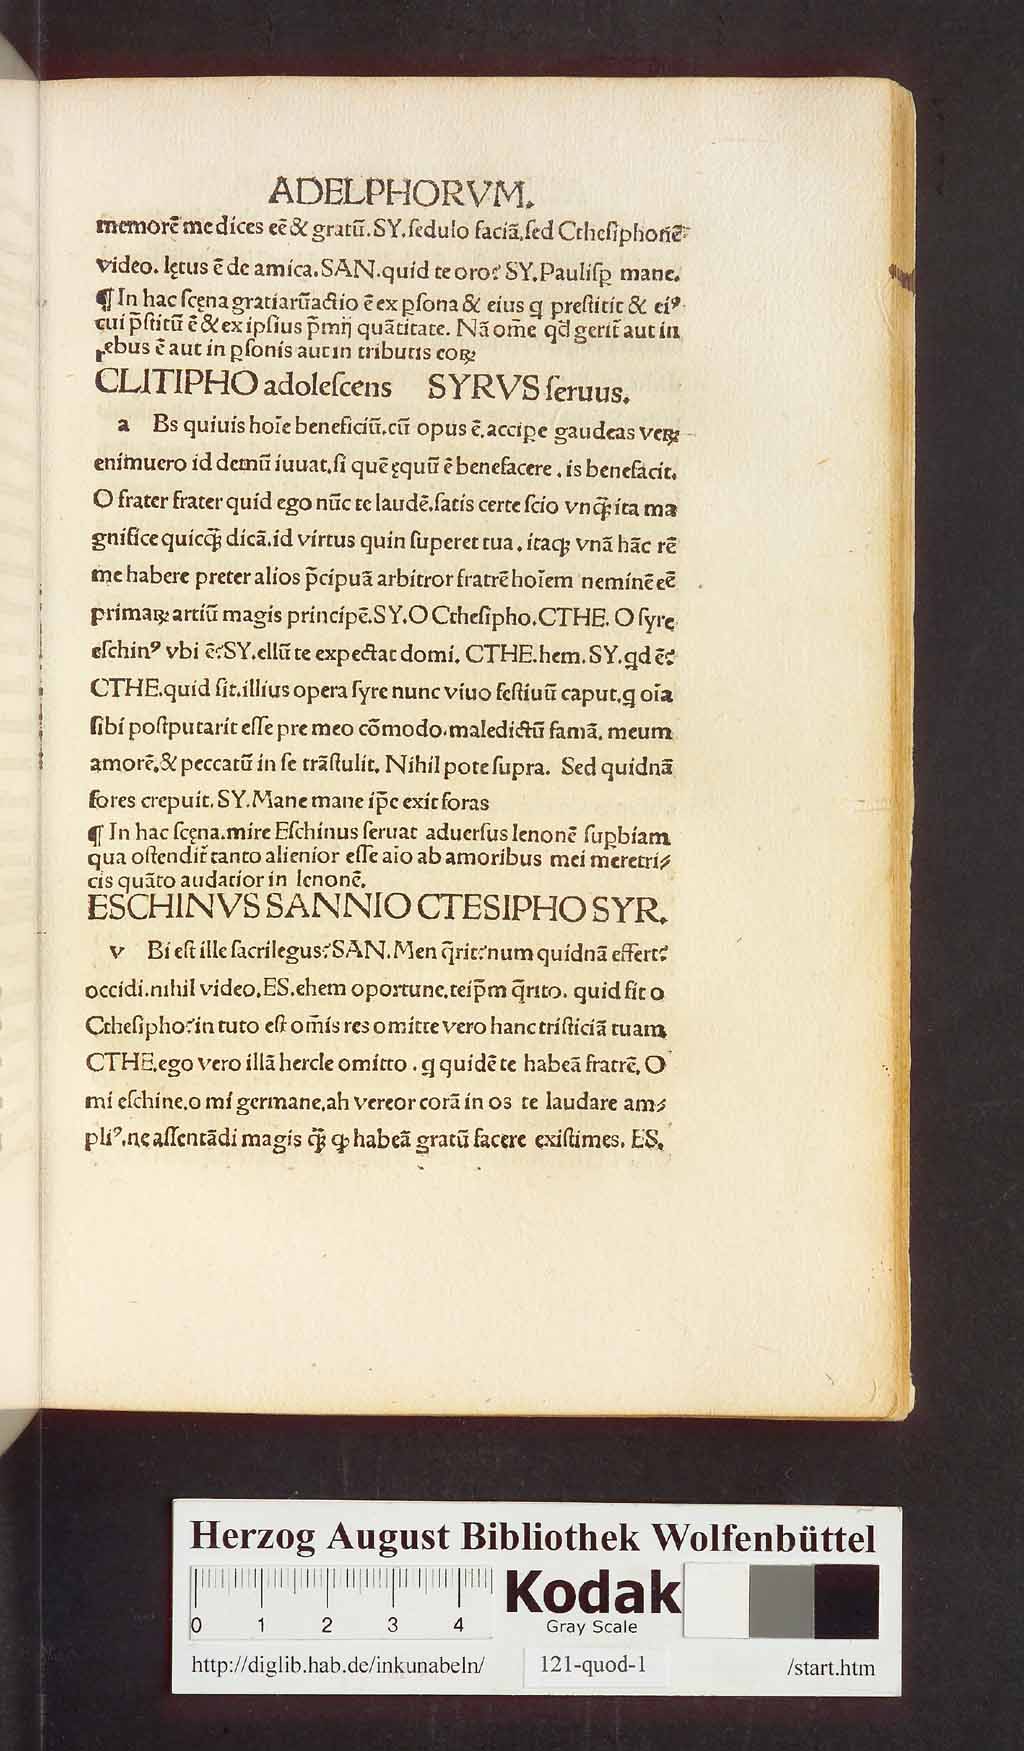 ADELPHORVM.
memorē me dices eē & gratū. SY. ſedulo faciā, ſed Ctheſiphonē
video. lętus ē de amica. SAN. quid te oro? SY. Pauliſꝑ mane.
¶ In hac ſcęna gratiarū actio ē ex ꝑſona & eius q preſtitit & eiꝰ
cui p̄ſtitū ē & ex ipſius p̄mij quātitate. Nā om̄e qd̓ gerit̄ aut in
rebus ē aut in ꝑſonis aut in tributis eoꝝ
CLITIPHO adoleſcens SYRVS ſeruus.
a Bs quiuis hoīe beneficiū. cū opus ē. accipe gaudeas veꝝ
enimuero id demū iuuat. ſi quē ęquū ē benefacere. is benefacit.
O frater frater quid ego nūc te laudē. ſatis certe ſcio vnq̄ꝫ ita ma
gnifice quicq̄ꝫ dicā. id virtus quin ſuperet tua. itaqꝫ vnā hāc rē
me habere preter alios p̄cipuā arbitror fratrē hoīem neminē eē
primaꝝ artiū magis principē. SY. O Ctheſipho. CTHE. O ſyre
eſchinꝰ vbi ē? SY. ellū te expectat domi. CTHE. hem. SY. qd ē?
CTHE. quid ſit. illius opera ſyre nunc viuo feſtiuū caput. q oīa
ſibi poſtputarit eſſe pre meo cōmodo. maledictū famā. meum
amorē. & peccatū in ſe trāſtulit. Nihil pote ſupra. Sed quidnā
fores crepuit. SY. Mane mane ip̄e exit foras
¶ In hac ſcęna. mire Eſchinus ſeruat aduerſus lenonē ſuꝑbiam
qua oſtendit̄ tanto alienior eſſe aīo ab amoribus mei meretri⸗
cis quāto audatior in lenonē.
ESCHINVS SANNIO CTESIPHO SYR.
v Bi eſt ille ſacrilegus? SAN. Men q̄rit? num quidnā effert?
occidi. nihil video. ES. ehem oportune. teip̄m q̄rito. quid fit o
Ctheſipho? in tuto eſt om̄is res omitte vero hanc triſticiā tuam
CTHE. ego vero illā hercle omitto. q quidē te habeā fratrē. O
mi eſchine. o mi germane. ah vereor corā in os te laudare am⸗
pliꝰ. ne aſſentādi magis q̄ꝫ ꝙ habeā gratū facere exiſtimes. ES.
Herzog August Bibliothek Wolfenbüttel
0 1 2 3 4
Kodak
Gray Scale
http://diglib.hab.de/inkunabeln/ 121-quod-1 /start.htm